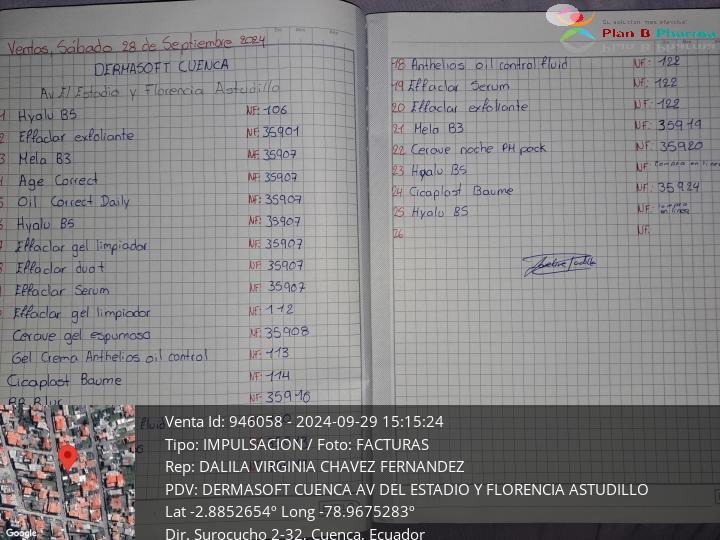 Ventas, Sábado 28 de Septiembre 2024
DERMASOFT CUENCA
Av El Estadio y Florencia Astudillo
1 Hyalu B5 NF: 106
2 Effaclar exfoliante NF: 35901
3 Mela B3 NF: 35907
Age Correct NF: 35907
Oil Correct Daily NF: 35907
Hyalu B5 NF: 35907
Effaclar gel limpiador NF: 35907
Effaclar duot NF: 35907
Effaclar Serum NF: 35907
Effaclar gel limpiador NF: 112
Cerave gel espumoso NF: 35908
Gel Crema Anthelios oil control NF: 113
Cicaplast Baume NF: 114
BB Blur NF: 35916
fluid
18 Anthelios oil control fluid NF: 122
19 Effaclar Serum NF: 122
20 Effaclar exfoliante NF: 122
21 Mela B3 NF: 35919
22 Cerave noche PH pack NF: 35920
23 Hyalu B5 NF: Compra en linea
24 Cicaplast Baume NF: 35924
25 Hyalu B5 NF: Compra en linea
26 NF:
Su solución más efectiva!
Plan B Pharma
Venta Id: 946058 - 2024-09-29 15:15:24
Tipo: IMPULSACION / Foto: FACTURAS
Rep: DALILA VIRGINIA CHAVEZ FERNANDEZ
PDV: DERMASOFT CUENCA AV DEL ESTADIO Y FLORENCIA ASTUDILLO
Lat -2.8852654º Long -78.9675283º
Dir. Surocucho 2-32, Cuenca, Ecuador
Google